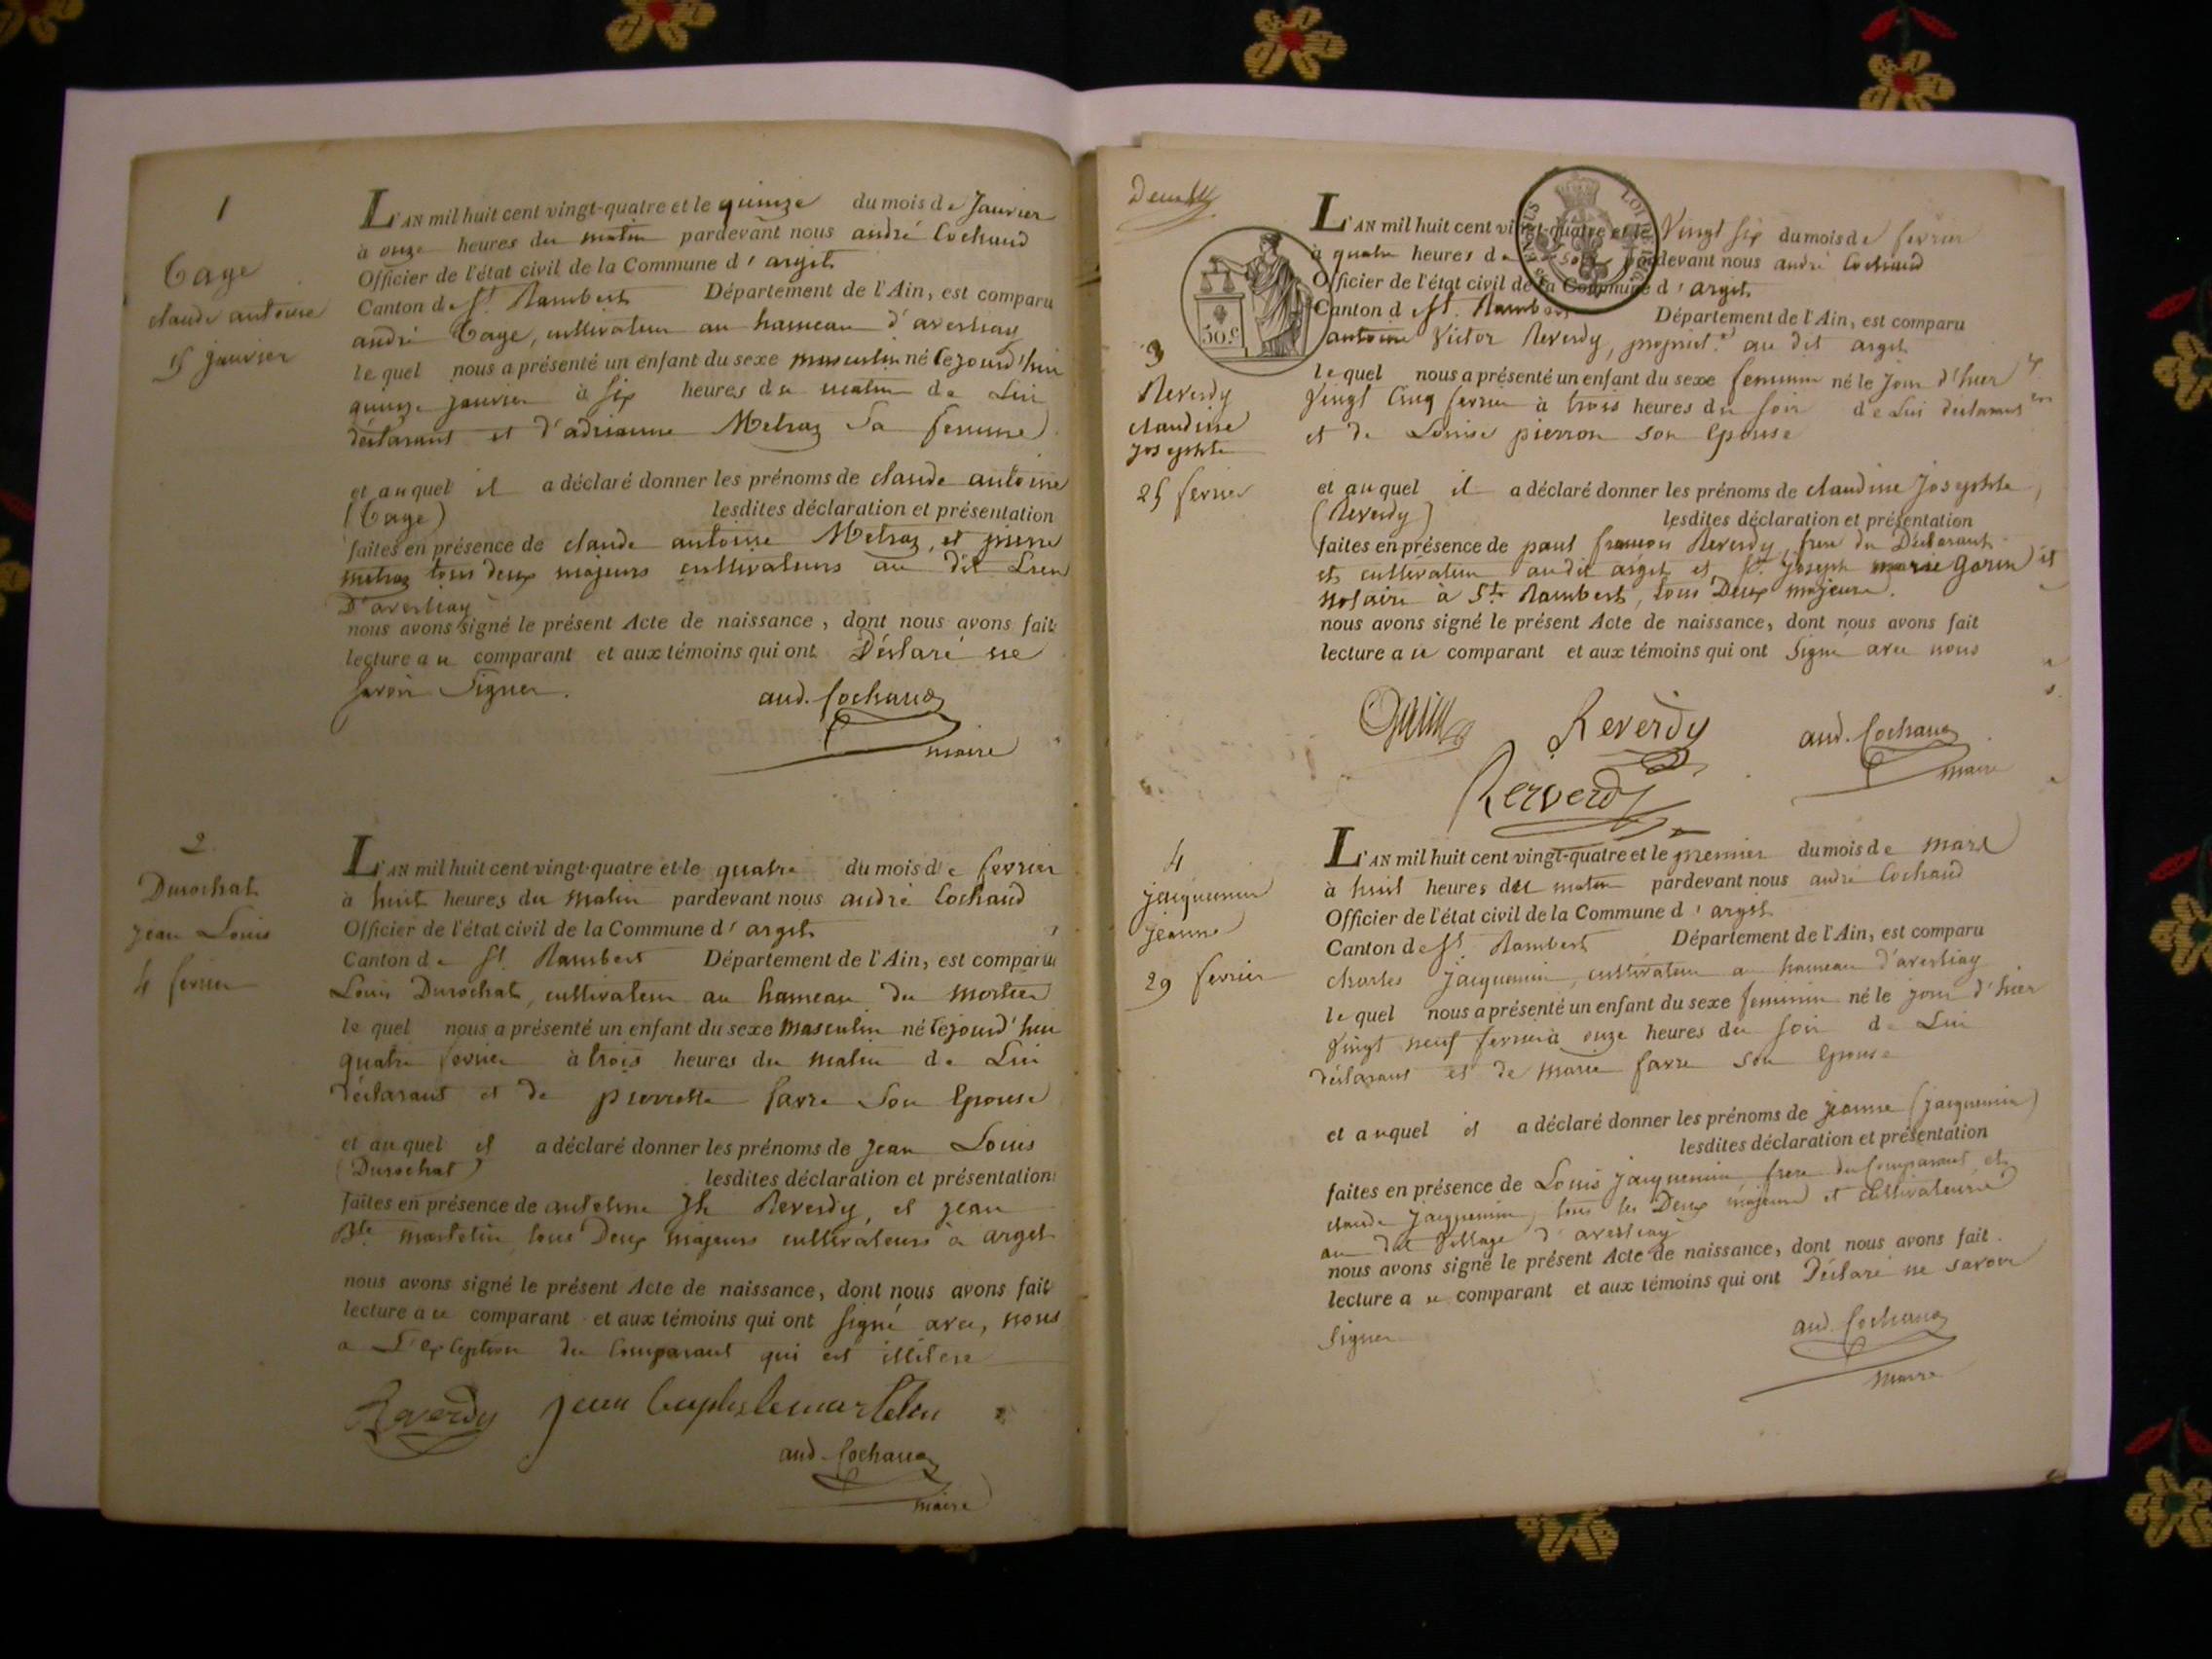 1
Tage
claude antoine
15 janvier
L'AN mil huit cent vingt-quatre et le quinze du mois de Janvier
à onze heures du matin pardevant nous andré Cochaud
Officier de l'état civil de la Commune d'argit
Canton de St. Rambert Département de l'Ain, est comparu
andré Tage, cultivateur au hameau d'averliay
le quel nous a présenté un enfant du sexe masculin né cejourd'hui
quinze janvier à six heures du matin de Lui
déclarant et d'adrianne Metraz Sa femme
et auquel il a déclaré donner les prénoms de claude antoine
(Tage) lesdites déclaration et présentation
faites en présence de claude antoine Metraz, et pierre
metraz tous deux majeurs cultivateurs au dit Lieu
D'averliay
nous avons signé le présent Acte de naissance, dont nous avons fait
lecture au comparant et aux témoins qui ont Déclaré ne
savoir Signer.
and. Cochaud
maire
2
Durochat
jean Louis
4 fevrier
L'AN mil huit cent vingt-quatre et le quatre du mois de fevrier
à huit heures du matin pardevant nous andré Cochaud
Officier de l'état civil de la Commune d'argit
Canton de St. Rambert Département de l'Ain, est comparu
Louis Durochat, cultivateur au hameau du mortier
le quel nous a présenté un enfant du sexe masculin né cejourd'hui
quatre fevrier à trois heures du matin de Lui
déclarant et de pierrette favre Son Epouse
et auquel il a déclaré donner les prénoms de jean Louis
(Durochat) lesdites déclaration et présentation
faites en présence de antelme Jh Reverdy, et jean
Bte martelin, tous Deux majeurs cultivateurs à argit
nous avons signé le présent Acte de naissance, dont nous avons fait
lecture au comparant et aux témoins qui ont signé avec, nous
a L'exception du Comparant qui est illitere
Reverdy jean baptiste martelin
and. Cochaud
maire
30 c
LOI DE 1816
3
Reverdy
claudine
josephte
25 fevrier
L'AN mil huit cent vingt-quatre et le Vingt six du mois de fevrier
à quatre heures du soir pardevant nous andré Cochaud
Officier de l'état civil de la Commune d'argit
Canton de St. Rambert Département de l'Ain, est comparu
antoine Victor Reverdy, propriet.e au dit argit
le quel nous a présenté un enfant du sexe feminin né le Jour d'hier
Vingt Cinq fevrier à trois heures du soir de Lui déclarant
et de Louise pierron son Epouse
et auquel il a déclaré donner les prénoms de claudine Josephte,
(Reverdy) lesdites déclaration et présentation
faites en présence de paul francois Reverdy, frere du Déclarant
et cultivateur audit argit et Sr. Joseph marie Gorin
notaire à St. Rambert, tous Deux majeurs.
nous avons signé le présent Acte de naissance, dont nous avons fait
lecture au comparant et aux témoins qui ont Signé avec nous
Reverdy and. Cochaud
maire
Reverdy
4
jacquemin
jeanne
29 fevrier
L'AN mil huit cent vingt-quatre et le premier du mois de mars
à huit heures du matin pardevant nous andré Cochaud
Officier de l'état civil de la Commune d'argit
Canton de St. Rambert Département de l'Ain, est comparu
charles jacquemin, cultivateur au hameau d'averliay
le quel nous a présenté un enfant du sexe feminin né le jour d'hier
Vingt neuf fevrier à onze heures du soir de Lui
déclarant et de marie favre son Epouse
et auquel il a déclaré donner les prénoms de jeanne (jacquemin)
lesdites déclaration et présentation
faites en présence de Louis jacquemin frere du Comparant et
claude jacquemin, tous les Deux majeurs et cultivateurs
au dit Village d'averliay
nous avons signé le présent Acte de naissance, dont nous avons fait
lecture au comparant et aux témoins qui ont Déclaré ne savoir
Signer
and. Cochaud
maire